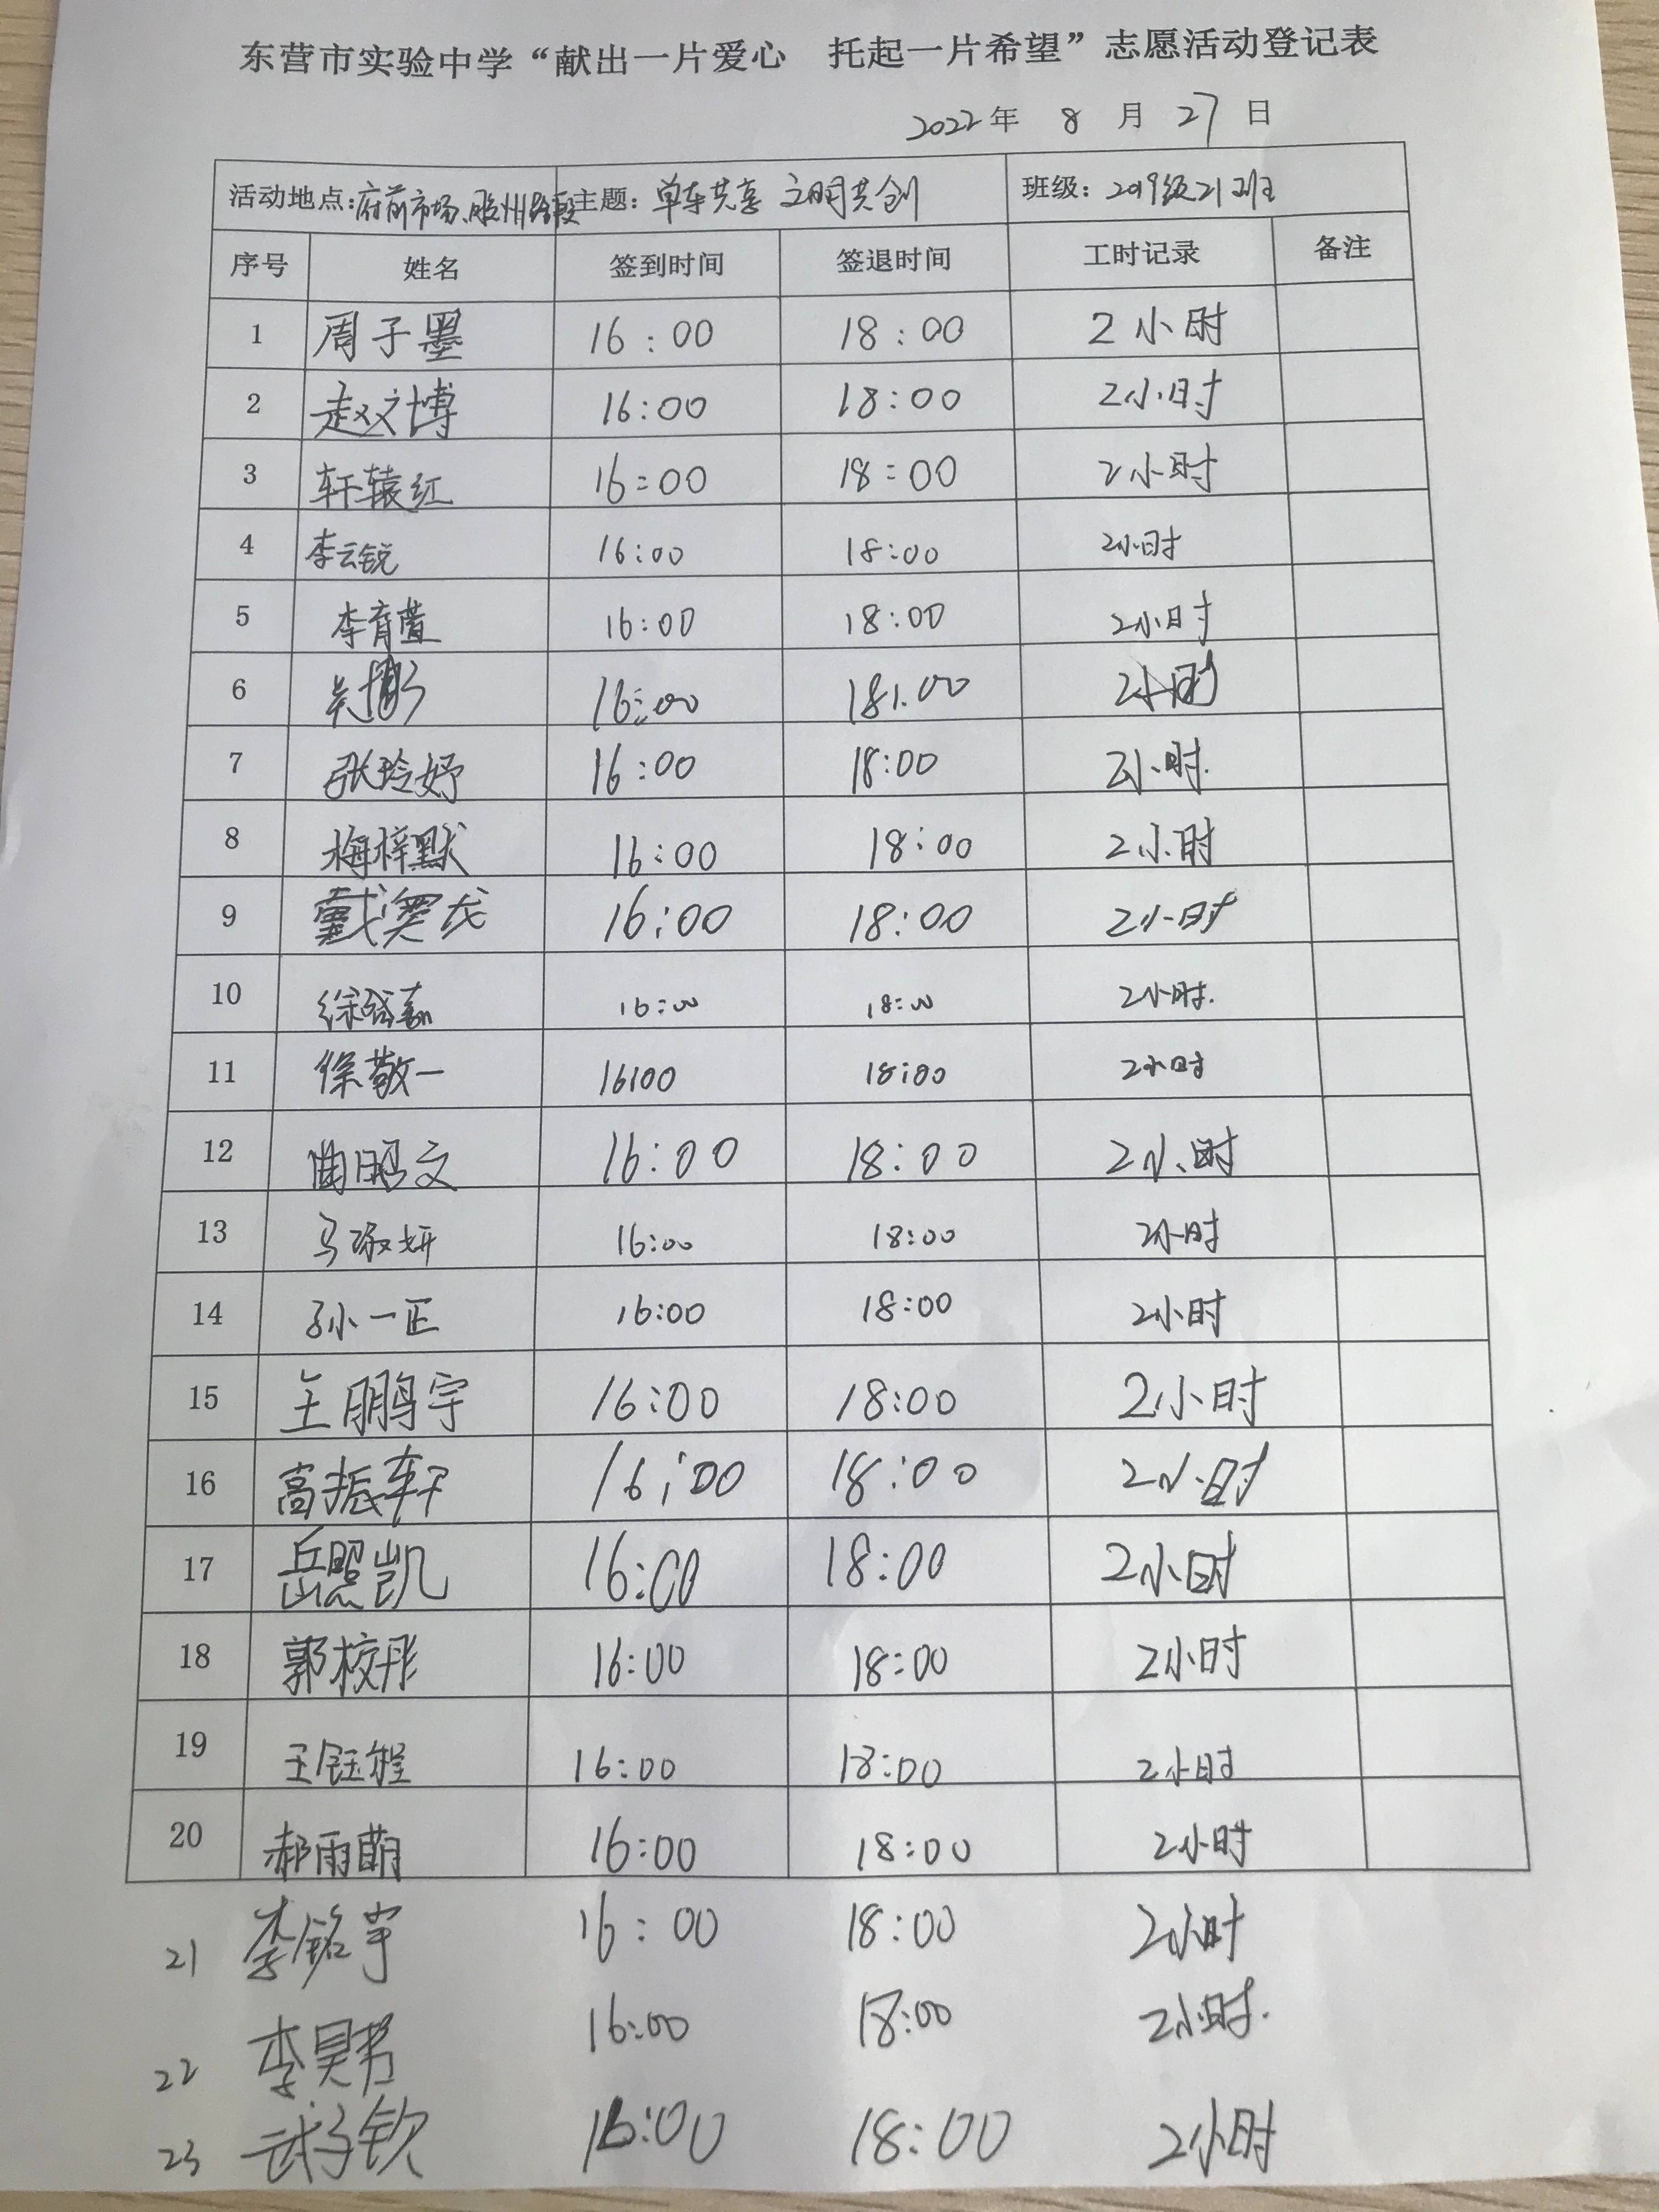 东营市实验中学“献出一片爱心 托起一片希望”志愿活动登记表
2022年 8 月 27 日
活动地点:府前市场、胶州路段 主题: 单车共享 文明共创 班级: 2019级21班
序号 姓名 签到时间 签退时间 工时记录 备注
1 周子墨 16:00 18:00 2小时
2 赵文博 16:00 18:00 2小时
3 轩辕红 16:00 18:00 2小时
4 李云锐 16:00 18:00 2小时
5 李育萱 16:00 18:00 2小时
6 16:00 18:00 2小时
7 张玲妤 16:00 18:00 2小时
8 梅梓默 16:00 18:00 2小时
9 戴 16:00 18:00 2小时
10 徐 16:00 18:00 2小时
11 徐敬一 16:00 18:00 2小时
12 文 16:00 18:00 2小时
13 马淑妍 16:00 18:00 2小时
14 孙一正 16:00 18:00 2小时
15 王鹏宇 16:00 18:00 2小时
16 高振轩 16:00 18:00 2小时
17 岳照凯 16:00 18:00 2小时
18 郭校彤 16:00 18:00 2小时
19 王钰程 16:00 18:00 2小时
20 郝雨萌 16:00 18:00 2小时
21 李铭宇 16:00 18:00 2小时
22 李昊 16:00 18:00 2小时.
23 武子钦 16:00 18:00 2小时